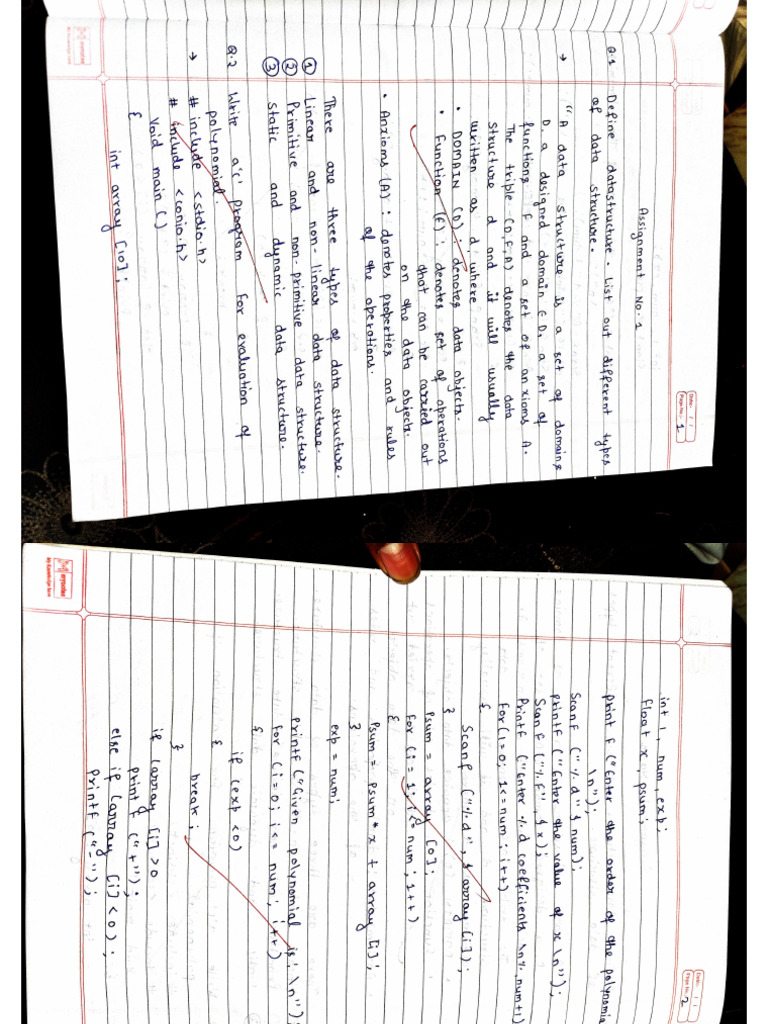 Date: / /
Page No.: 1
Assignment No. 1
Q.1 Define datastructure. List out different types
of data structure.
→ "A data structure is a set of domains
D, a designed domain ∈ D, a set of
functions F and a set of anxioms A.
The triple (D,F,A) denotes the data
structure d and it will usually
written as d, where
• DOMAIN (D) : denotes data object.
• Function (F) : denotes set of operations
that can be carried out
on the data object.
• Anxioms (A) : denotes properties and rules
of the operations.
There are three types of data structure.
① Linear and non-linear data structure.
② Primitive and non-primitive data structure.
③ Static and dynamic data structure.
Q.2 Write a 'c' program for evaluation of
polynomial.
→ # include <stdio.h>
# include <conio.h>
Void main ()
{
int array [10];
Date: / /
Page No.: 2
int i, num, exp;
float x, psum;
print f ("Enter the order of the polynomia
\n");
Scanf ("%d" & num);
printf ("Enter the value of x \n");
Scanf ("%f", & x);
Printf ("Enter %d coefficients \n%, num+1)
for (i=0; i<=num; i++)
{
Scanf ("%d", & array [i]);
}
Psum = array [0];
for (i=1; i<=num; i++)
{
Psum = Psum * x + array [i];
}
exp = num;
printf ("Given polynomial is: \n");
for (i=0; i<=num; i++)
{
if (exp<0)
{
break;
}
if (array [i]>0
print f ("+");
else if (array [i]<0);
printf ("-");